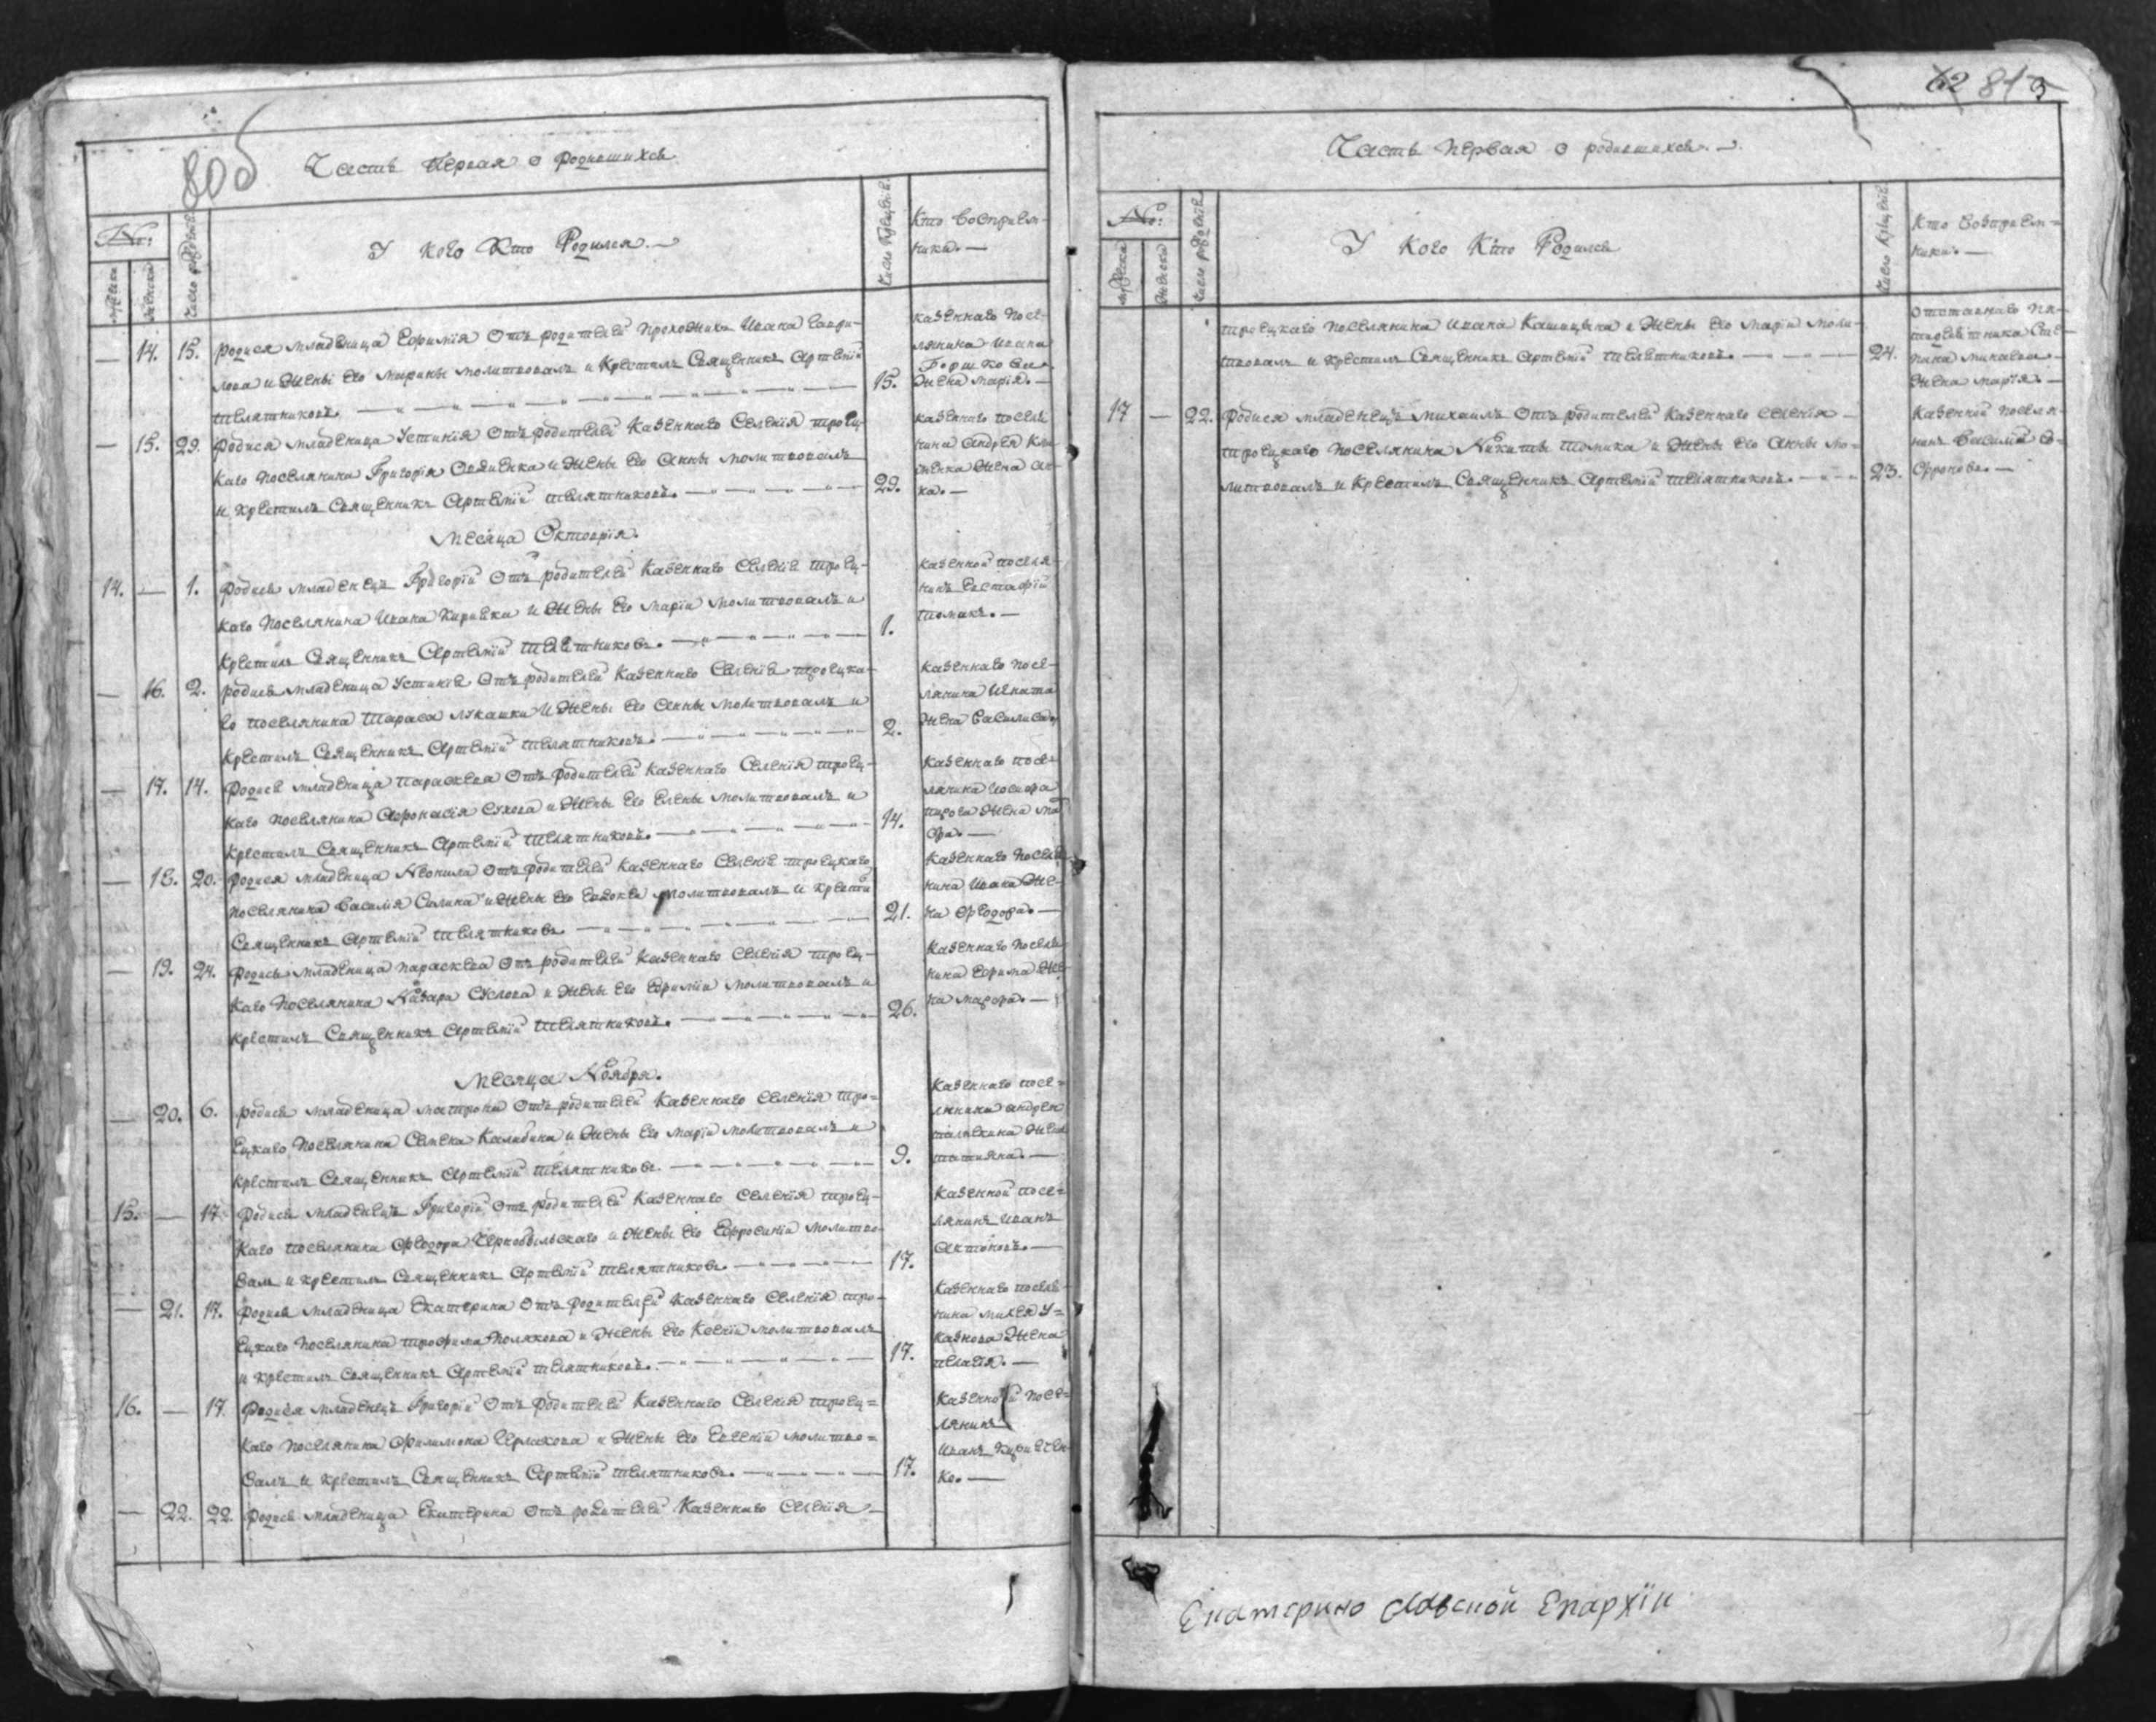 80б
Часть Первая о родившихся
№:
мужеска
женска
число рождения
У Кого Кто Родился.
Число Крещения
Кто восприем-
ники.
— 14. 15. Родися младеница Евфимия Отъ родителей Ивана Гаври-
лова и Жены Его Марины молитвовалъ и Крестилъ Священникъ Артемий
Телятниковъ. 15.
казеннаго посе-
лянина Ивана
Жена Мария.
— 15. 29. Родися младеница Устиния Отъ родителей Казеннаго Селения троец-
каго поселянина Григория и Жены Его Анны молитвовалъ
и крестилъ Священникъ Артемий Телятниковъ. 29.
казеннаго поселя
нина Андрея
Жена Ан-
на.
Месяца Октоврия.
14. — 1. Родися младенецъ Григорий Отъ родителей Казеннаго Селения троец-
каго Поселянина Ивана и Жены Его Марии молитвовалъ и
Крестилъ Священникъ Артемий Телятниковъ. 1.
казенной поселя-
нинъ Евстафий
Шомакъ.
— 16. 2. родися младеница Устиния Отъ родителей Казеннаго Селения троецка-
го поселянина Тараса Лукашки и Жены Его Анны молитвовалъ и
Крестилъ Священникъ Артемий Телятниковъ. 2.
казеннаго посе-
лянина Игната
Жена Василиса
— 17. 14. Родися младеница Параскева Отъ родителей Казеннаго Селения троец-
каго поселянина Афонасия Сухова и Жены Его Елены молитвовалъ и
крестилъ Священникъ Артемий Телятниковъ. 14.
казеннаго посе-
лянина Иосифа
Жена Ма
— 18. 20. Родися младеница Неонила Отъ родителей Казеннаго Селения троецкаго
поселянина Василия Салика и Жены Его Евдокеи молитвовалъ и крести
Священникъ Артемий Телятниковъ 21.
казеннаго поселя
нина Ивана Же-
на Феодора.
— 19. 24. Родися младеница параскева Отъ родителей Казеннаго Селения троец-
каго Поселянина Назара Суслова и Жены Его Евфимии молитвовалъ и
крестилъ Священникъ Артемий Телятниковъ. 26.
Казеннаго поселя
нина Ефима Же
на Марфа.
Месяца Ноября.
— 20. 6. родися младеница матрона Отъ родителей Казеннаго Селения тро=
ецкаго Поселянина Семена Калибина и Жены Его Марии молитвовалъ и
крестилъ Священникъ Артемий Телятниковъ. 9.
Казеннаго посе=
лянина андрея
Жена
татияна.
15. — 17. Родися младенецъ Григорий Отъ родителей Казеннаго Селения троец-
каго поселянина Феодора Чернобыльскаго и Жены Его Евфросинии молитво-
валъ и крестилъ Священникъ Артемий Телятниковъ 17.
Казенной посе=
лянинъ Иванъ
Антоновъ.
— 21. 17. Родися младеница Екатерина Отъ родителей Казеннаго Селения тро-
ецкаго поселянина трофима Полякова и Жены Его Ксении молитвовалъ
и крестилъ Священникъ Артемий Телятниковъ. 17.
Казеннаго поселя-
нина Михея У=
Жена
пелагия.
16. — 17 Родися младенецъ Григорий Отъ родителей Казеннаго Селения троец=
каго поселянина Филимона Чермакова и Жены Его Евгении молитво=
валъ и крестилъ Священникъ Артемий Телятниковъ. 17.
Казенной посе=
лянинъ
Иванъ Кириечен
ко.
— 22. 22. Родися младеница Екатерина Отъ родителей Казеннаго Селения
62 81
Часть первая о родившихся.
№:
мужеска
женска
Число рождения
У Кого Кто Родился
Число Крещения
Кто восприем=
ники.
троецкаго поселянина Ивана Кашицына и Жены Его Марии моли-
твовалъ и крестилъ Священникъ Артемий Телятниковъ. 24.
отставнаго
Жена мария.
17 — 22. Родися младенецъ Михаилъ Отъ родителей Казеннаго Селения
троецкаго поселянина Никиты Шомика и Жены Его Анны мо=
литвовалъ и Крестилъ Священникъ Артемий Телятниковъ. 23.
Казенной поселя-
нинъ Василий Со=
фроновъ.
Екатеринославской Епархіи